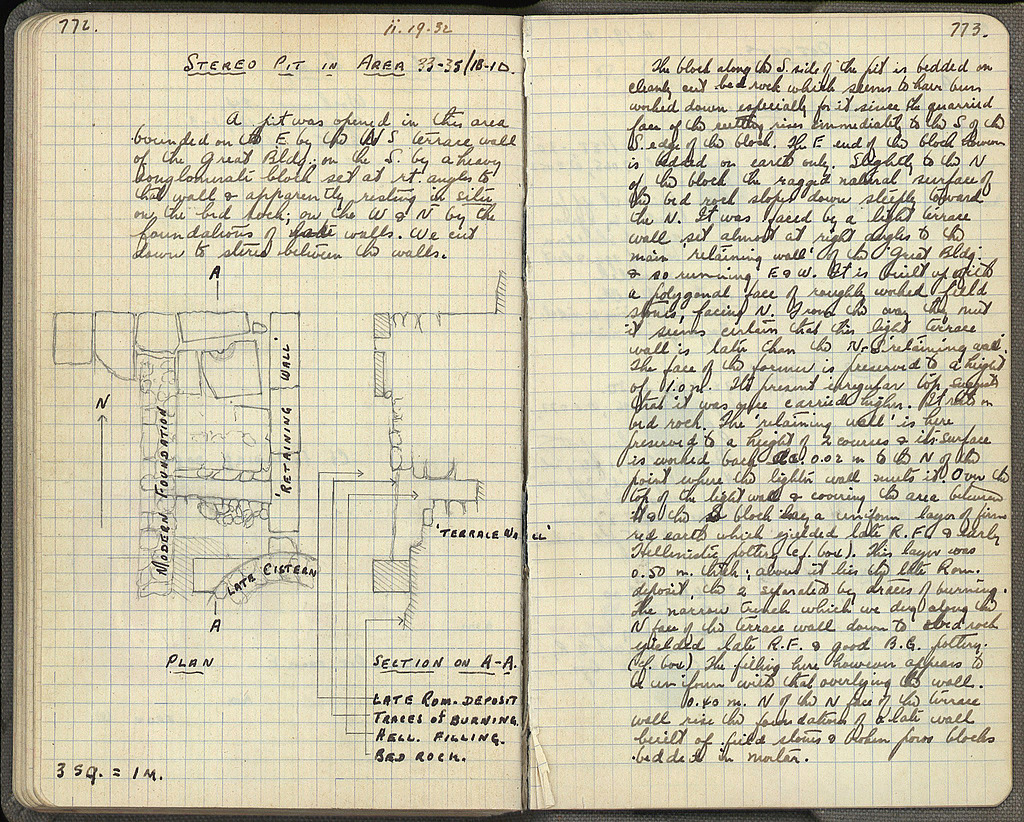 772.
ii.19.32
STEREO PIT IN AREA 33-35/18-10.
A pit was opened in this area
bounded on the E by the N S terrace wall
of the Great Bldg.: on the S. by a heavy
conglomerate block set at rt. angles to
that wall & apparently resting in situ
on the bed rock; on the W & N by the
foundations of late walls. We cut
down to stereo between the walls.
A
N
MODERN FOUNDATION
'RETAINING WALL'
LATE CISTERN
A
PLAN
'TERRACE WALL'
SECTION ON A-A.
LATE ROM. DEPOSIT
TRACES OF BURNING.
HELL. FILLING.
BED ROCK.
3 SQ. = 1 M.
773.
The block along the S. side of the pit is bedded on
cleanly cut bed rock which seems to have been
worked down especially for it since the quarried
face of the cutting rises immediately to the S of the
S. edge of the block. The E end of the block however
is bedded on earth only. Slightly to the N
of the block the ragged natural surface of
the bed rock slopes down steeply toward
the N. It was faced by a light terrace
wall set almost at right angles to the
main 'retaining wall' of the 'Great Bldg.'
& so running E & W. It is built up with
a polygonal face of roughly worked field
stones, facing N. From the way they meet
it seems certain that this light terrace
wall is later than the N-S 'retaining wall'.
The face of the former is preserved to a height
of 1.0 m. Its present irregular top suggests
that it was once carried higher. It rests on
bed rock. The 'retaining wall' is here
preserved to a height of 2 courses & its surface
is worked back ca. 0.02 m to the N of the
point where the lighter wall meets it. Over the
top of the light wall & covering the area between
it & the S block lay a uniform layer of firm
red earth which yielded late R.F. & early
Hellenistic pottery (cf. box). This layer was
0.50 m. thick; above it lies the late Rom.
deposit, the 2 separated by traces of burning.
The narrow trench which we dug along the
N face of the terrace wall down to bed rock
yielded late R.F. & good B.G. pottery.
(cf. box) The filling here however appears to
be uniform with that overlying the wall.
0.40 m. N of the N face of the terrace
wall rise the foundations of a late wall
built of field stones & broken poros blocks
bedded in mortar.